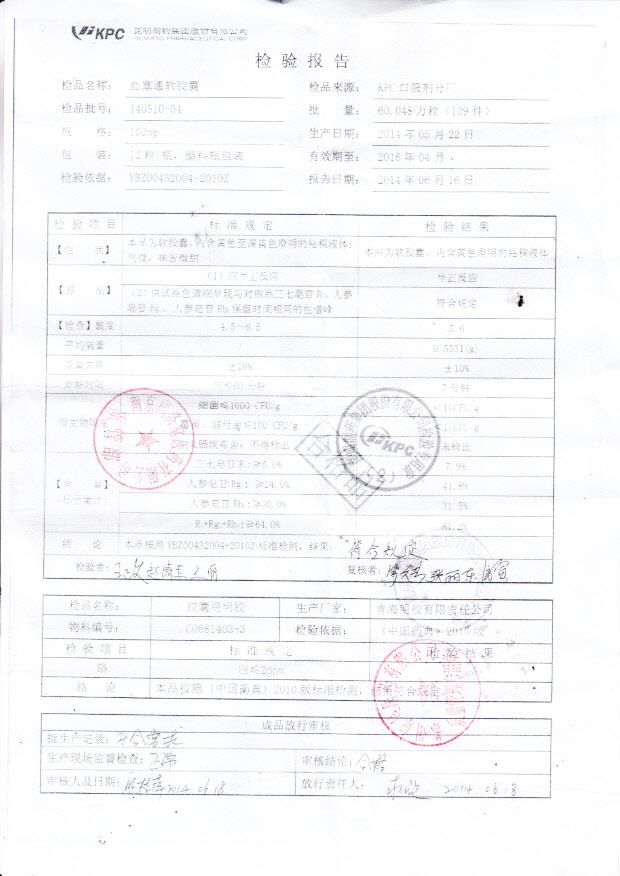 KPC 昆明制药集团股份有限公司
KUNMING PHARMACEUTICAL CORP.
检验报告
检品名称: 血塞通软胶囊 检品来源: KPC 口服剂分厂
检品批号: 140510-04 批 量: 60.048 万粒 (139 件)
规 格: 100mg 生产日期: 2014 年 05 月 22 日
包 装: 12 粒/瓶, 塑料瓶包装 有效期至: 2016 年 04 月
检验依据: YBZ00432004-2010Z 报告日期: 2014 年 06 月 16 日
检验项目 标准规定 检验结果
【性 状】 本品为软胶囊, 内含黄色至深黄色澄明的粘稠液体; 气微, 味苦微甜 本品为软胶囊, 内含黄色澄明的粘稠液体
【鉴 别】 (1) 应呈正反应 呈正反应
(2) 供试品色谱应呈现与对照品三七皂苷 R₁、人参皂苷 Rg₁、人参皂苷 Rb₁保留时间相同的色谱峰 符合规定
【检查】酸度 4.5~6.5 5.6
平均装量 / 0.5531(g)
装量差异 ±10% ±10%
崩解时限 应≤60 分钟 7 分钟
微生物限度 细菌≤1000 CFU/g <10CFU/g
霉菌、酵母菌≤100 CFU/g <10CFU/g
大肠埃希菌: 不得检出 未检出
【含 量】(标示量计) 三七皂苷 R₁:≥5.0% 7.9%
人参皂苷 Rg₁:≥24.0% 41.8%
人参皂苷 Rb₁:≥30.0% 31.5%
R₁+Rg₁+Rb₁:≥64.0% 81.2%
结 论 本品按照 YBZ00432004-2010Z 标准检测, 结果: 符合规定
检验者: 复核者:
合格品
KPC
检品名称: 胶囊用明胶 生产厂家: 青海明胶有限责任公司
物料编号: C0681403-3 检验依据: 《中国药典》2010 版
检验项目 标准规定 检验结果
铬 应≤2ppm
结 论 本品按照《中国药典》2010 版标准检测, 结果符合规定
成品放行审核
批生产记录: 符合要求
生产现场监督检查: 正常 审核结论: 合格
审核人及日期: 2014.06.18 放行责任人: 2014.06.18